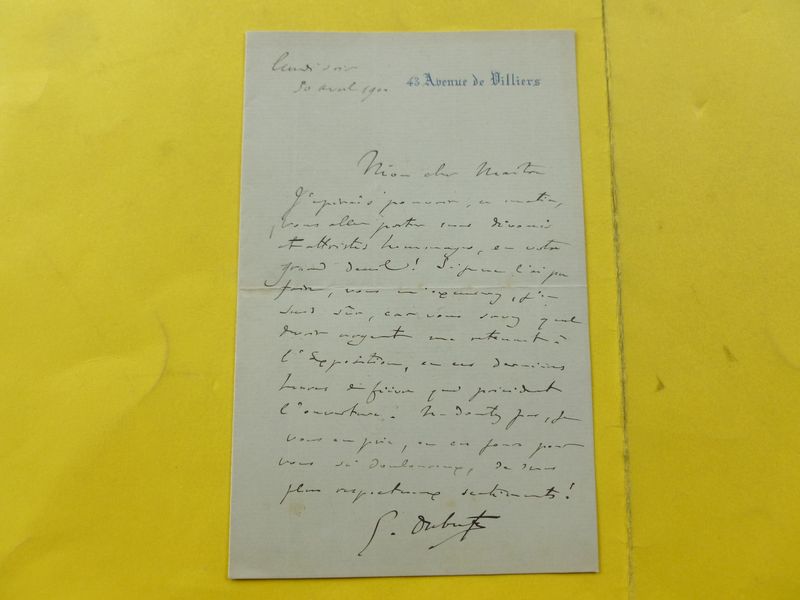 lundi soir
30 avril 1900
43 Avenue de Villiers
Mon cher Maitre
J'espérais pouvoir, ce matin,
vous aller porter mes dévoués
et attristés hommages, en votre
grand deuil! Si je ne l'ai pu
faire, vous m'excuserez, j'en
suis sûr, car vous savez quel
devoir urgent me retenait à
l'Exposition, en ces dernières
heures de fièvre qui précèdent
l'ouverture. Ne doutez pas, je
vous en prie, en ces jours pour
vous si douloureux, de mes
plus respectueux sentiments!
G. Dubufe